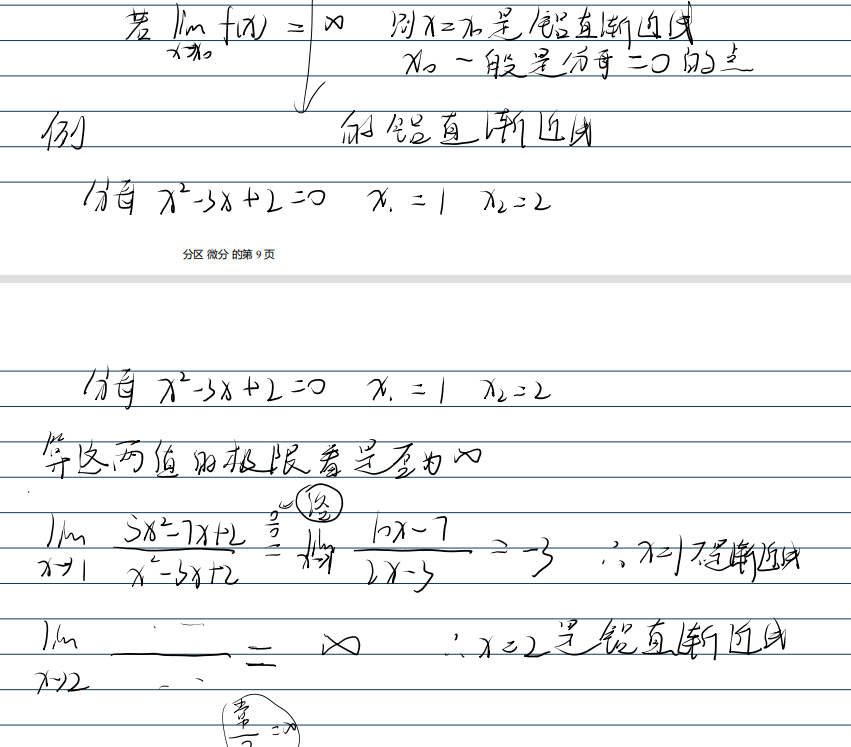 若 lim x→x₀ f(x) = ∞ 则 x=x₀ 是铅直渐近线
x₀ 一般是分母=0的点
例 的铅直渐近线
分母 x²-3x+2=0 x₁=1 x₂=2
分区 微分 的第 9 页
分母 x²-3x+2=0 x₁=1 x₂=2
算这两值的极限看是否为∞
lim x→1 (5x²-7x+2)/(x²-3x+2) 0/0 = 洛 lim x→1 (10x-7)/(2x-3) = -3 ∴ x=1不是渐近线
lim x→2 = ∞ ∴ x=2是铅直渐近线
常/0 = ∞